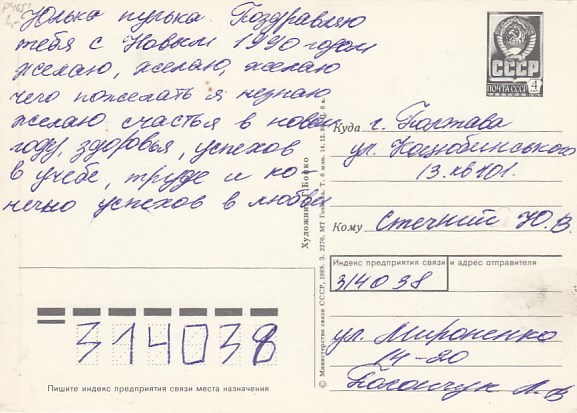 Юлька пулька. Поздравляю
тебя с Новым 1990 годом
желаю, желаю, желаю
чего пожелать я незнаю
желаю счастья в новом
году, здоровья, успехов
в учебе, труде и ко-
нечно успехов в любви
СССР
ПОЧТА СССР
4
Куда г. Полтава
ул. Коцюбинського
13. кв 101.
Кому Стечний Ю. В.
Индекс предприятия связи и адрес отправителя
314038
ул. Мироненко
14-20
Л. В
314038
Пишите индекс предприятия связи места назначения
Художник Г. Бойко
© Министерство связи СССР, 1989. З. 2276. МТ Гознака. Т. 6 млн. 14.12. 6 к.